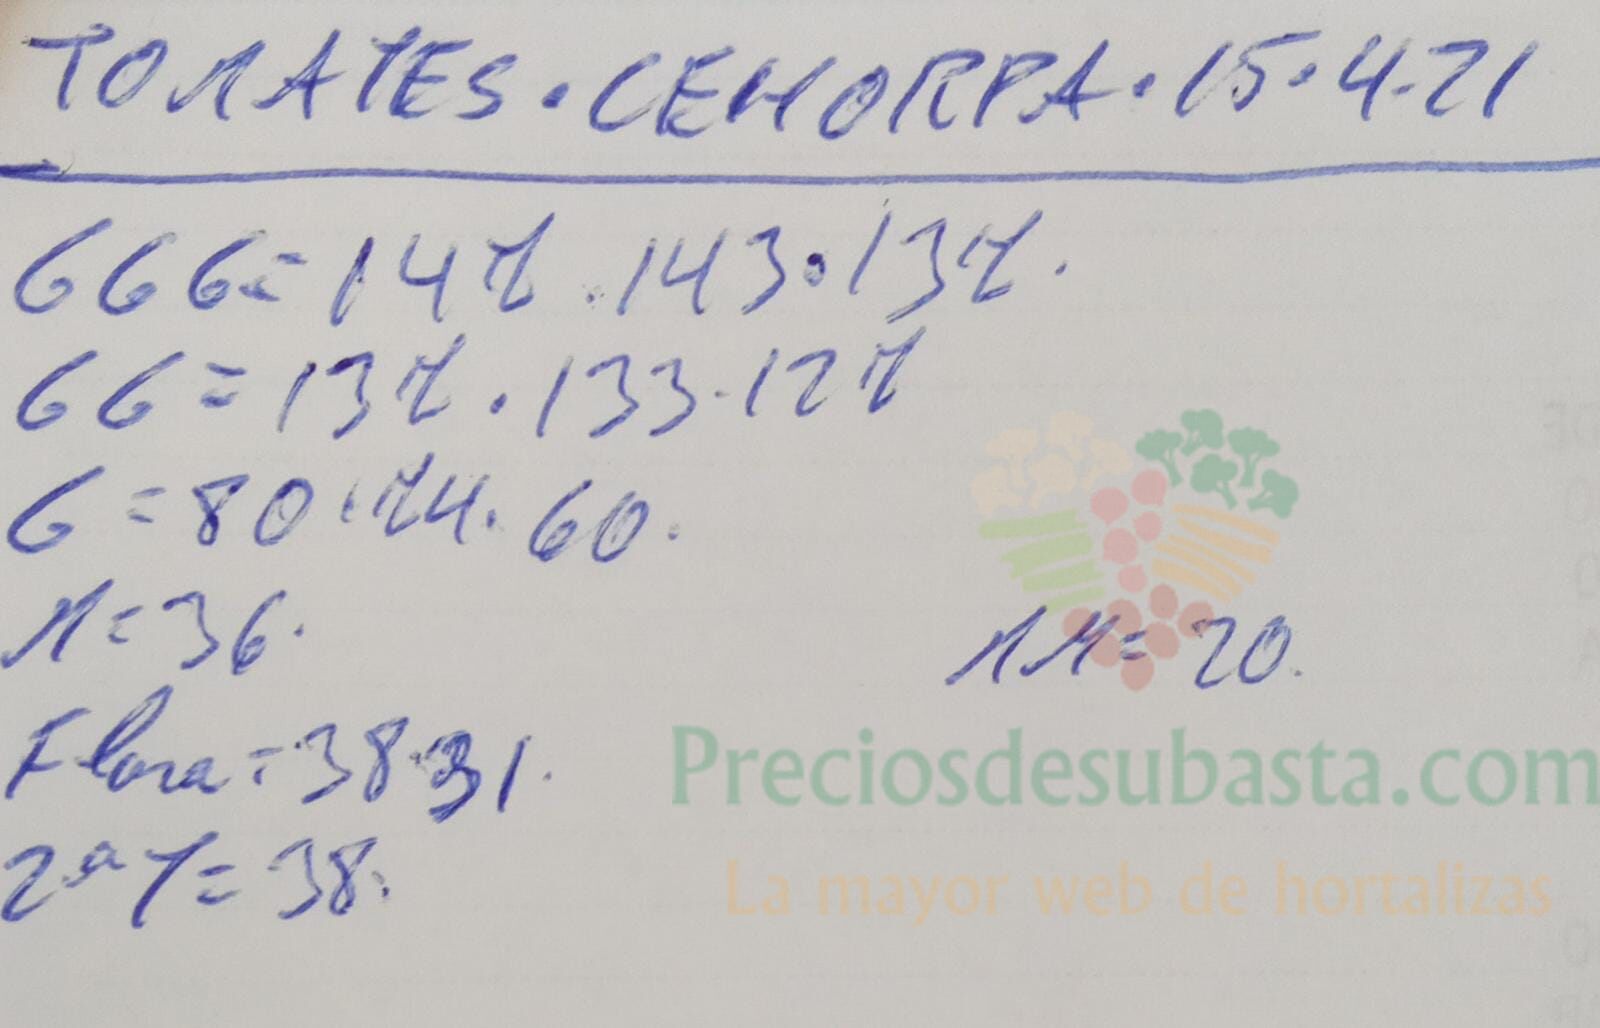 TOMATES · CEHORPA · 15 · 4 · 21
GGG = 147 · 143 · 137 ·
GG = 137 · 133 · 127
G = 80 · 74 · 60 ·
M = 36 ·
MM = 20 ·
Flora = 38 · 31 ·
2ª 7 = 38 ·
Preciosdesubasta.com
La mayor web de hortalizas